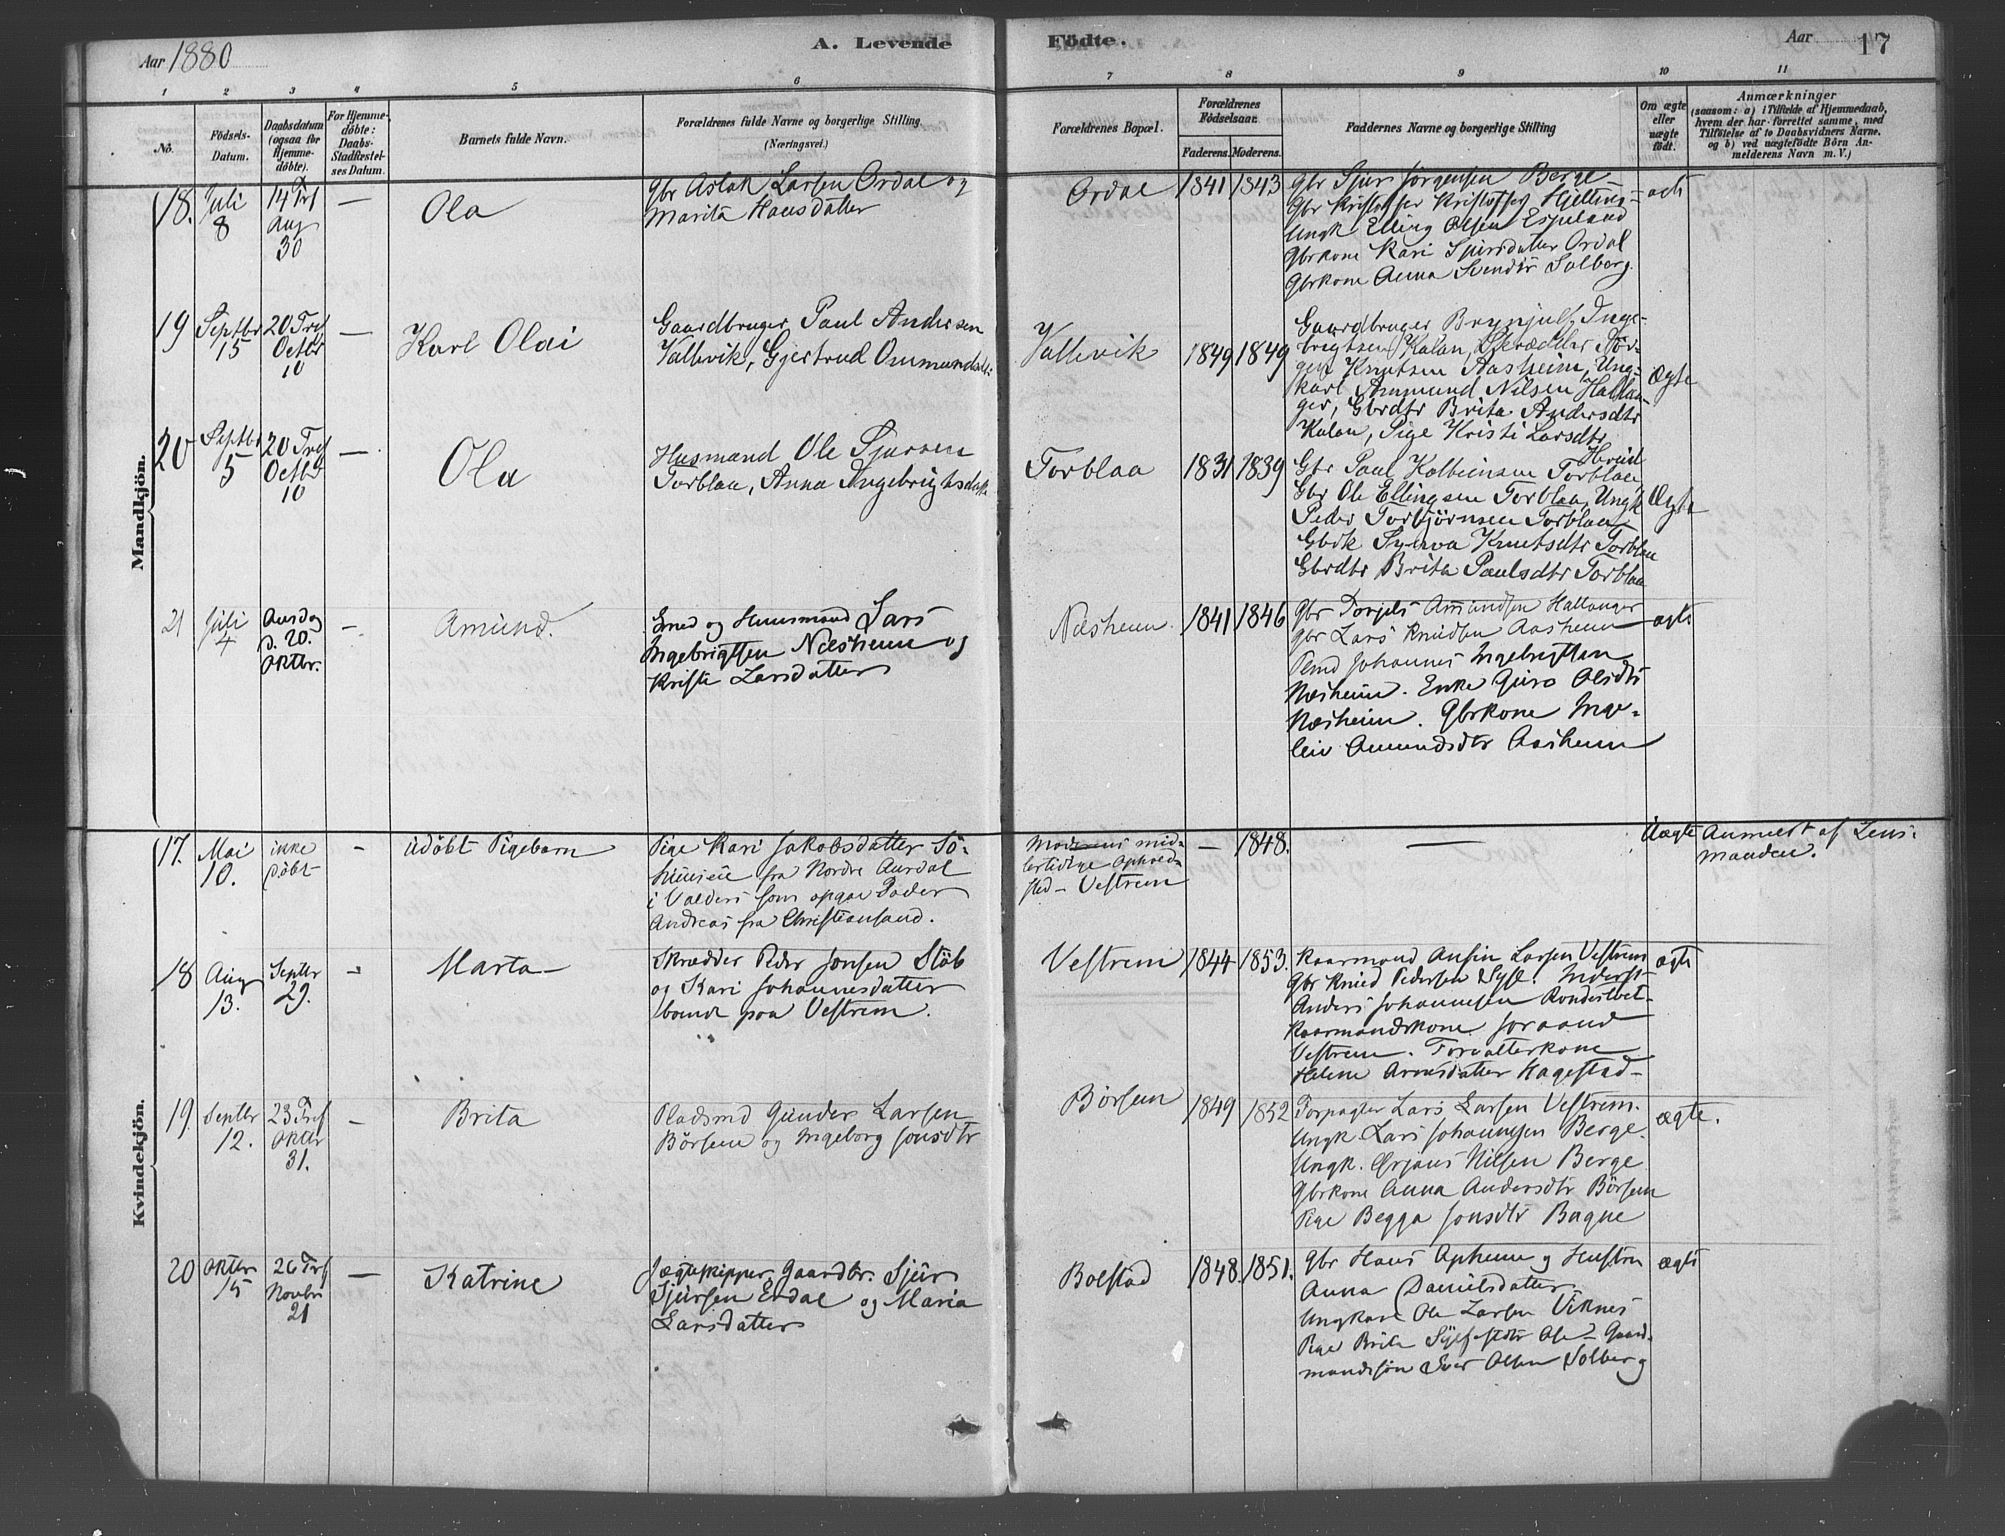 Aar 1880
A. Levende
Födte.
Aar
17
1 2 3 4 5 6 7 8 9 10 11
No.
Födsels-
Datum.
Daabsdatum
(ogsaa for
Hjemme-
döbte).
For Hjemme-
döbte:
Daabs-
Stadfæstel-
ses Datum.
Barnets fulde Navn.
Forældrenes fulde Navne og borgerlige Stilling.
(Næringsvei.)
Forældrenes Bopæl.
Forældrenes
Födselsaar.
Faderens. Moderens.
Faddernes Navne og borgerlige Stilling
Om ægte
eller
uægte
födt.
Anmærkninger
(saasom: a) i Tilfælde af Hjemmedaab,
hvem der har forrettet samme, med
Tilföielse af to Daabsvidners Navne.
og b) ved uægtefödte Börn An-
melderens Navn m. V.)
Mandkjön.
18. Juli
8
14 Trf
Aug
30
—
Ola
Gbr Aslak Larsen Ordal og
Marita Hansdatter
Ordal
1841 1843
Gbr Sjur Jörgensen Berge
Gbr Kristoffer Kristoffers Hjelling-
Ungk Elling Olsen Espeland
Gbrkone Kari Sjursdatter Ordal
Gbrkone Anna Svendtr Solberg.
ægte
19 Septbr
15
20 Tref
Octbr
10
—
Karl Olai
Gaardbruger Paul Andersen
Vallevik, Gjertrud Ommundsdtr
Vallevik
1849 1849
Gaardbruger Brynjulf Inge-
brigtsen Kalan, Skrædder Jör-
gen Knutsen Aasheim, Ung-
karl Ammund Nilsen Hallan-
ger, Gbrdtr Brita Andersdtr
Kalan, Pige Kristi Larsdtr
Ægte
20 Septbr
5
20 Tref
Octbr
10
—
Ola
Husmand Ole Sjursen
Torblaa, Anna Ingebrigtsdatter
Torblaa
1831 1839
Gbr Paul Kolbeinsen Torblaa
Gbr Ole Ellingsen Torblaa, Ungk
Peder Torbjörnsen Torblaa
Gbdk Synva Knutsdtr Torblaa
Gbrdtr Brita Paulsdtr Torblaa
Ægte
21 Juli
4
Onsdag
d. 20.
Oktbr.
—
Amund.
og Huusmand Lars
Ingebrigtsen Næsheim og
Kristi Larsdatter
Næsheim.
1841 1846
Gbr Torjels Amundsen Hallanger
Gbr Lars Knudsen Aasheim
Johannes Ingebrigtsen
Næsheim. Enke Guro Olsdtr
Næsheim. Gbrkone Inge-
leiv Amundsdtr Aasheim
ægte
Kvindekjön.
17. Mai
10.
ikke
döbt
-
Udöbt Pigebarn
Pige Kari Jakobsdatter
fra Nordre Aurdal
i Valders som opgav Fader
Andreas fra Christiansand.
Moderens mid-
lertidige Opholds-
sted - Vestrem
— 1848.
—
Uægte
Anmeldt af Lens-
manden.
18 Aug
13.
Septbr
29.
-
Marta
Skrædder Peder Jonsen Stöb
og Kari Johannesdatter
boende paa Vestrem.
Vestrem
1844 1853.
Kaarmand Ansin Larsen Vestrem
Gbr Knud Pedersen Inderst
Anders Johannesen
Kaarmandskone Joraand
Vestrem. Forvalterkone
Helene Arnesdatter Hagestad
ægte
19. Septbr
12.
23 Tref
Oktbr
31.
—
Brita
Pladsmd Gunder Larsen
Börsem og Ingeborg Jonsdtr
Börsem
1849 1852
Forpagter Lars Larsen Vestrem.
Ungk. Lars Johannesen Berge.
Ungk. Örjans Nilsen Berge
Gbrkone Anna Andersdtr Börsem
Pige Begga Jonsdtr Bagne
ægte.
20 Oktbr
15
26 Tref
Novbr
21
—
Katrine
Jægtskipper, Gaardbr. Sjur
Sjursen Erdal og Maria
Larsdatter
Bolstad
1848. 1851.
Gbr Hans Opheim og Hustru
Anna Danielsdatter
Ungkarl Ole Larsen Viknes
Pige Brita Sylfestdtr Gaard-
mandssön Iver Olsen Solberg
ægte